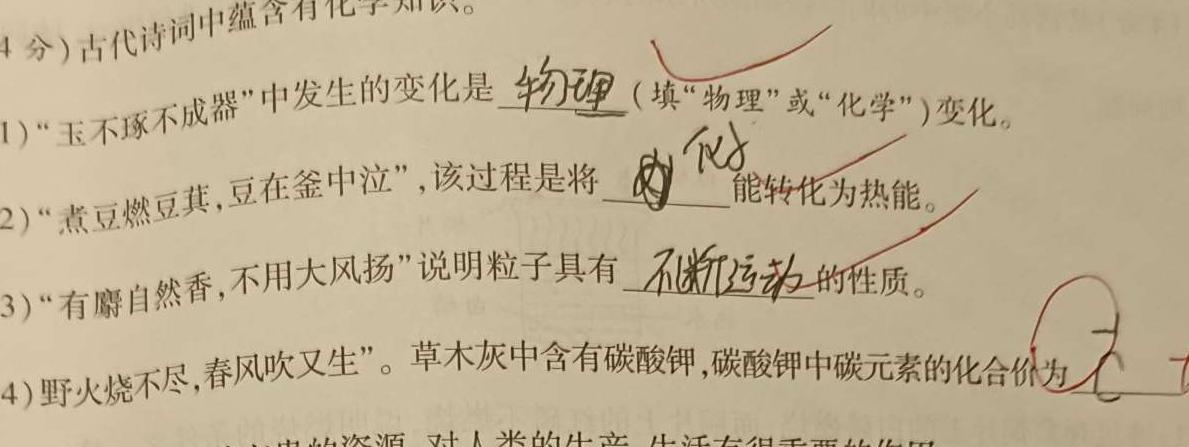 4分)古代诗词中蕴含有化学知识。
1)“玉不琢不成器”中发生的变化是物理(填“物理”或“化学”)变化。
2)“煮豆燃豆萁,豆在釜中泣”,该过程是将 化学 能转化为热能。
3)“有麝自然香,不用大风扬”说明粒子具有不断运动的性质。
4)野火烧不尽,春风吹又生”。草木灰中含有碳酸钾,碳酸钾中碳元素的化合价为
的资源,对人类的生产、生活有很重要的作用